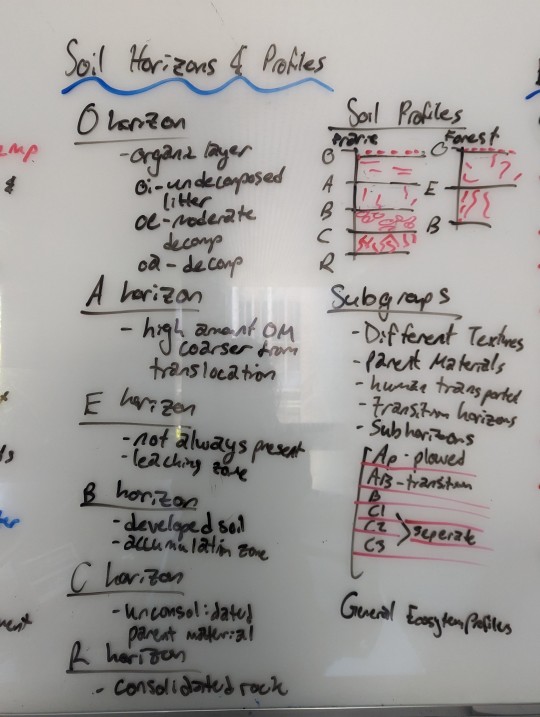 Soil Horizons & Profiles
O horizon
- organic layer
oi - undecomposed
litter
oe - moderate
decomp
oa - decomp
A horizon
- high amount OM
coarser from
translocation
E horizon
- not always present
- leaching zone
B horizon
- developed soil
- accumulation zone
C horizon
- unconsolidated
parent material
R horizon
- consolidated rock
Soil Profiles
Prarie
O
A
B
C
R
Forest
O
E
B
Subgroups
- Different Textures
- Parent Materials
- human transported
- transition horizons
- Subhorizons
Ap - plowed
AB - transition
B
C1
C2
C3
seperate
General Ecosytem Profiles